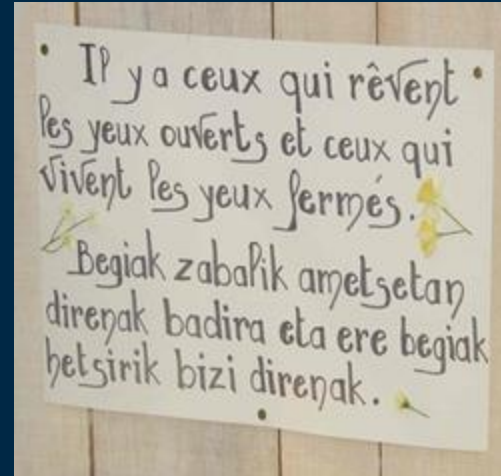 Il y a ceux qui rêvent
les yeux ouverts et ceux qui
vivent les yeux fermés.
Begiak zabalik ametsetan
direnak badira eta ere begiak
hetsirik bizi direnak.